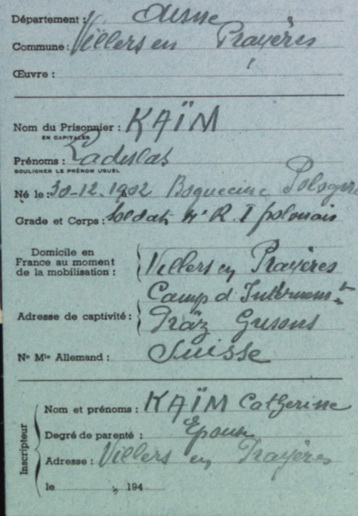 Département : Aisne
Commune : Villers en Prayères
Œuvre :
Nom du Prisonnier : KAÏM
EN CAPITALES
Prénoms : Ladislas
SOULIGNER LE PRÉNOM USUEL
Né le : 30-12-1902 Boguecine Pologne
Grade et Corps : Soldat 4e R. I polonais
Domicile en
France au moment
de la mobilisation : Villers en Prayères
Camp d'Internemt
Adresse de captivité : Präz Grisons
No Mle Allemand : Suisse
Inscripteur
Nom et prénoms : KAÏM Catherine
Degré de parenté : Epouse
Adresse : Villers en Prayères
le , 194